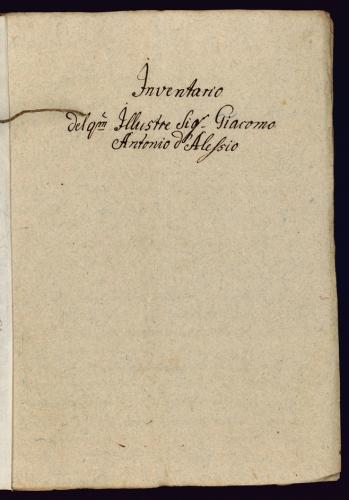 Inventario
del qm̃ Illustre Sigr. Giacomo
Antonio d'Alessio